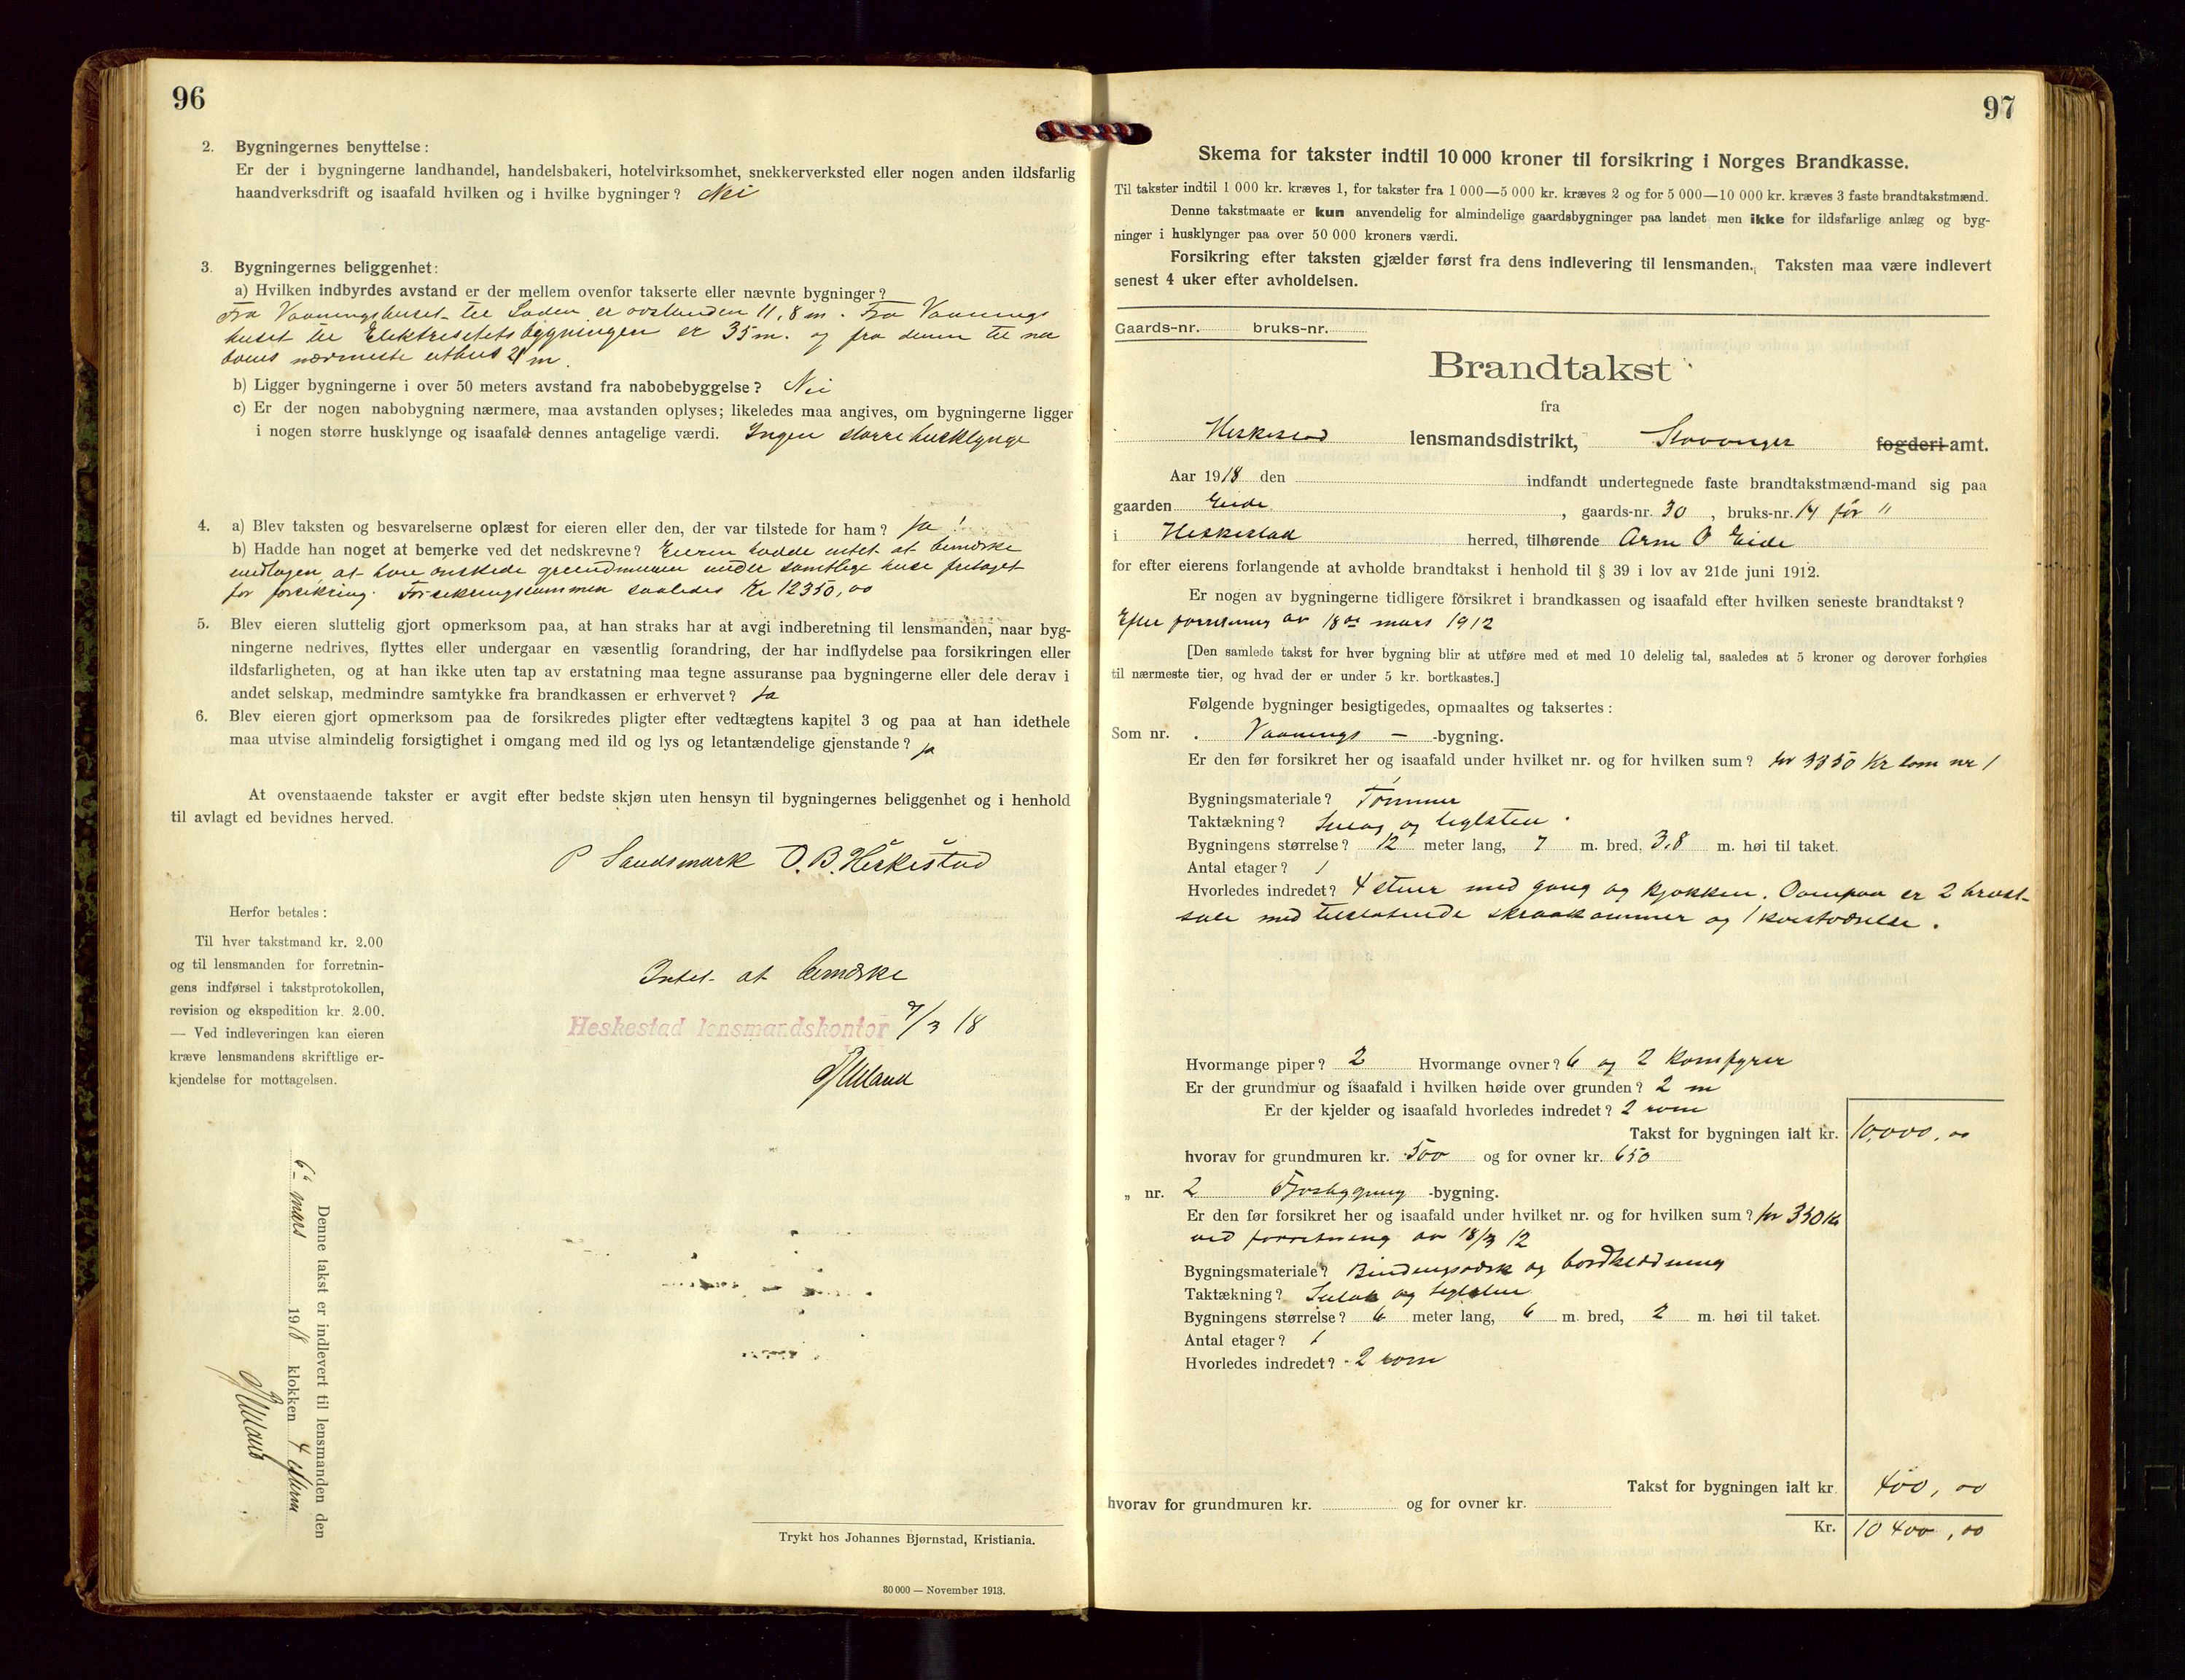 96
2. Bygningernes benyttelse:
Er der i bygningerne landhandel, handelsbakeri, hotelvirksomhet, snekkerverksted eller nogen anden ildsfarlig
haandverksdrift og isaafald hvilken og i hvilke bygninger? Nei
3. Bygningernes beliggenhet:
a) Hvilken indbyrdes avstand er der mellem ovenfor takserte eller nævnte bygninger?
Fra Vaaningshuset til Laden er avstanden 11,8 m. Fra Vaanings
huset til Elektrisitetsbygningen er 35 m. og fra denne til na
boens nærmeste uthus 21 m.
b) Ligger bygningerne i over 50 meters avstand fra nabobebyggelse? Nei
c) Er der nogen nabobygning nærmere, maa avstanden oplyses; likeledes maa angives, om bygningerne ligger
i nogen større husklynge og isaafald dennes antagelige værdi. Ingen større husklynge
4. a) Blev taksten og besvarelserne oplæst for eieren eller den, der var tilstede for ham? Ja!
b) Hadde han noget at bemerke ved det nedskrevne? Eieren hadde intet at bemærke
undtagen at han ønskede grundmuren under samtlige huse fritaget
for forsikring. Forsikringssummen saaledes Kr 12350,00
5. Blev eieren sluttelig gjort opmerksom paa, at han straks har at avgi indberetning til lensmanden, naar byg-
ningerne nedrives, flyttes eller undergaar en væsentlig forandring, der har indflydelse paa forsikringen eller
ildsfarligheten, og at han ikke uten tap av erstatning maa tegne assuranse paa bygningerne eller dele derav i
andet selskap, medmindre samtykke fra brandkassen er erhvervet? Ja
6. Blev eieren gjort opmerksom paa de forsikredes pligter efter vedtægtens kapitel 3 og paa at han idethele
maa utvise almindelig forsigtighet i omgang med ild og lys og letantændelige gjenstande? Ja
At ovenstaaende takster er avgit efter bedste skjøn uten hensyn til bygningernes beliggenhet og i henhold
til avlagt ed bevidnes herved.
P Sandsmark O. B. Heskestad
Herfor betales:
Til hver takstmand kr. 2.00
og til lensmanden for forretnin-
gens indførsel i takstprotokollen,
revision og ekspedition kr. 2.00.
— Ved indleveringen kan eieren
kræve lensmandens skriftlige er-
kjendelse for mottagelsen.
Intet at bemærke
Heskestad lensmandskontor 7/3 18
Denne takst er indlevert til lensmanden den
6te mars 1918 klokken 4 efterm
Trykt hos Johannes Bjørnstad, Kristiania.
30 000 — November 1913.
97
Skema for takster indtil 10 000 kroner til forsikring i Norges Brandkasse.
Til takster indtil 1 000 kr. kræves 1, for takster fra 1 000—5 000 kr. kræves 2 og for 5 000—10 000 kr. kræves 3 faste brandtakstmænd.
Denne takstmaate er kun anvendelig for almindelige gaardsbygninger paa landet men ikke for ildsfarlige anlæg og byg-
ninger i husklynger paa over 50 000 kroners værdi.
Forsikring efter taksten gjælder først fra dens indlevering til lensmanden. Taksten maa være indlevert
senest 4 uker efter avholdelsen.
Gaards-nr. bruks-nr.
Brandtakst
fra
Heskestad lensmandsdistrikt, Stavanger fogderi amt.
Aar 1918 den indfandt undertegnede faste brandtakstmænd-mand sig paa
gaarden Eide, gaards-nr. 30, bruks-nr. 14 før "
i Heskestad herred, tilhørende Arne O Eide
for efter eierens forlangende at avholde brandtakst i henhold til § 39 i lov av 21de juni 1912.
Er nogen av bygningerne tidligere forsikret i brandkassen og isaafald efter hvilken seneste brandtakst?
Efter forretning av 18de mars 1912
[Den samlede takst for hver bygning blir at utføre med et med 10 delelig tal, saaledes at 5 kroner og derover forhøies
til nærmeste tier, og hvad der er under 5 kr. bortkastes.]
Følgende bygninger besigtigedes, opmaaltes og taksertes:
Som nr. . Vaanings — -bygning.
Er den før forsikret her og isaafald under hvilket nr. og for hvilken sum? for 3350 Kr som nr 1
Bygningsmateriale? Tømmer
Taktækning? Sulag og teglsten.
Bygningens størrelse? 12 meter lang, 7 m. bred, 3,8 m. høi til taket.
Antal etager? 1
Hvorledes indredet? 4 stuer med gang og kjøkken. Ovenpaa er 2 kvist-
sale med tilstøtende skraakammer og 1 kvistværelse.
Hvormange piper? 2 Hvormange ovner? 6 og 2 Komfyrer
Er der grundmur og isaafald i hvilken høide over grunden? 2 m
Er der kjelder og isaafald hvorledes indredet? 2 rom
Takst for bygningen ialt kr. 10,000,00
hvorav for grundmuren kr. 500 og for ovner kr. 650
„ nr. 2 Fjosbygning -bygning.
Er den før forsikret her og isaafald under hvilket nr. og for hvilken sum? for 350 Kr
ved forretning av 18/3 12
Bygningsmateriale? Bindingsværk og bordklædning
Taktækning? Sulak og teglsten
Bygningens størrelse? 6 meter lang, 6 m. bred, 2 m. høi til taket.
Antal etager? 1
Hvorledes indredet? 2 rom
Takst for bygningen ialt kr. 400,00
hvorav for grundmuren kr. og for ovner kr.
Kr. 10 400,00